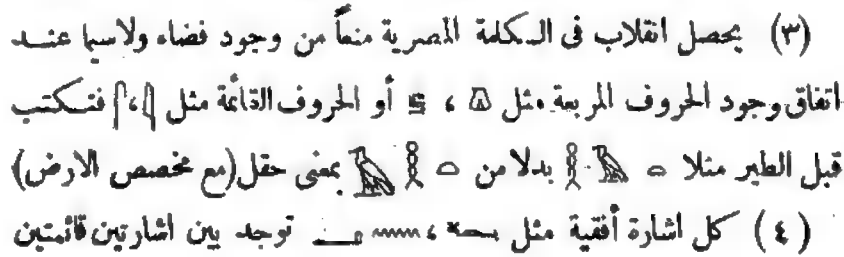 (٣) يحصل انقلاب فى الكلمة المصرية منعاً من وجود فضاء ولاسيما عند
اتفاق وجود الحروف المربعة مثل 𓎼 ، أو الحروف القائمة مثل 𓇋 ، 𓋴 فتكتب
قبل الطير مثلا 𓏏 𓅓 𓎛 بدلا من 𓏏 𓎛 𓅓 بمعنى حقل (مع مخصص الارض)
(٤) كل اشارة أفقية مثل ، 𓈖 توجد بين اشارتين قائمتين